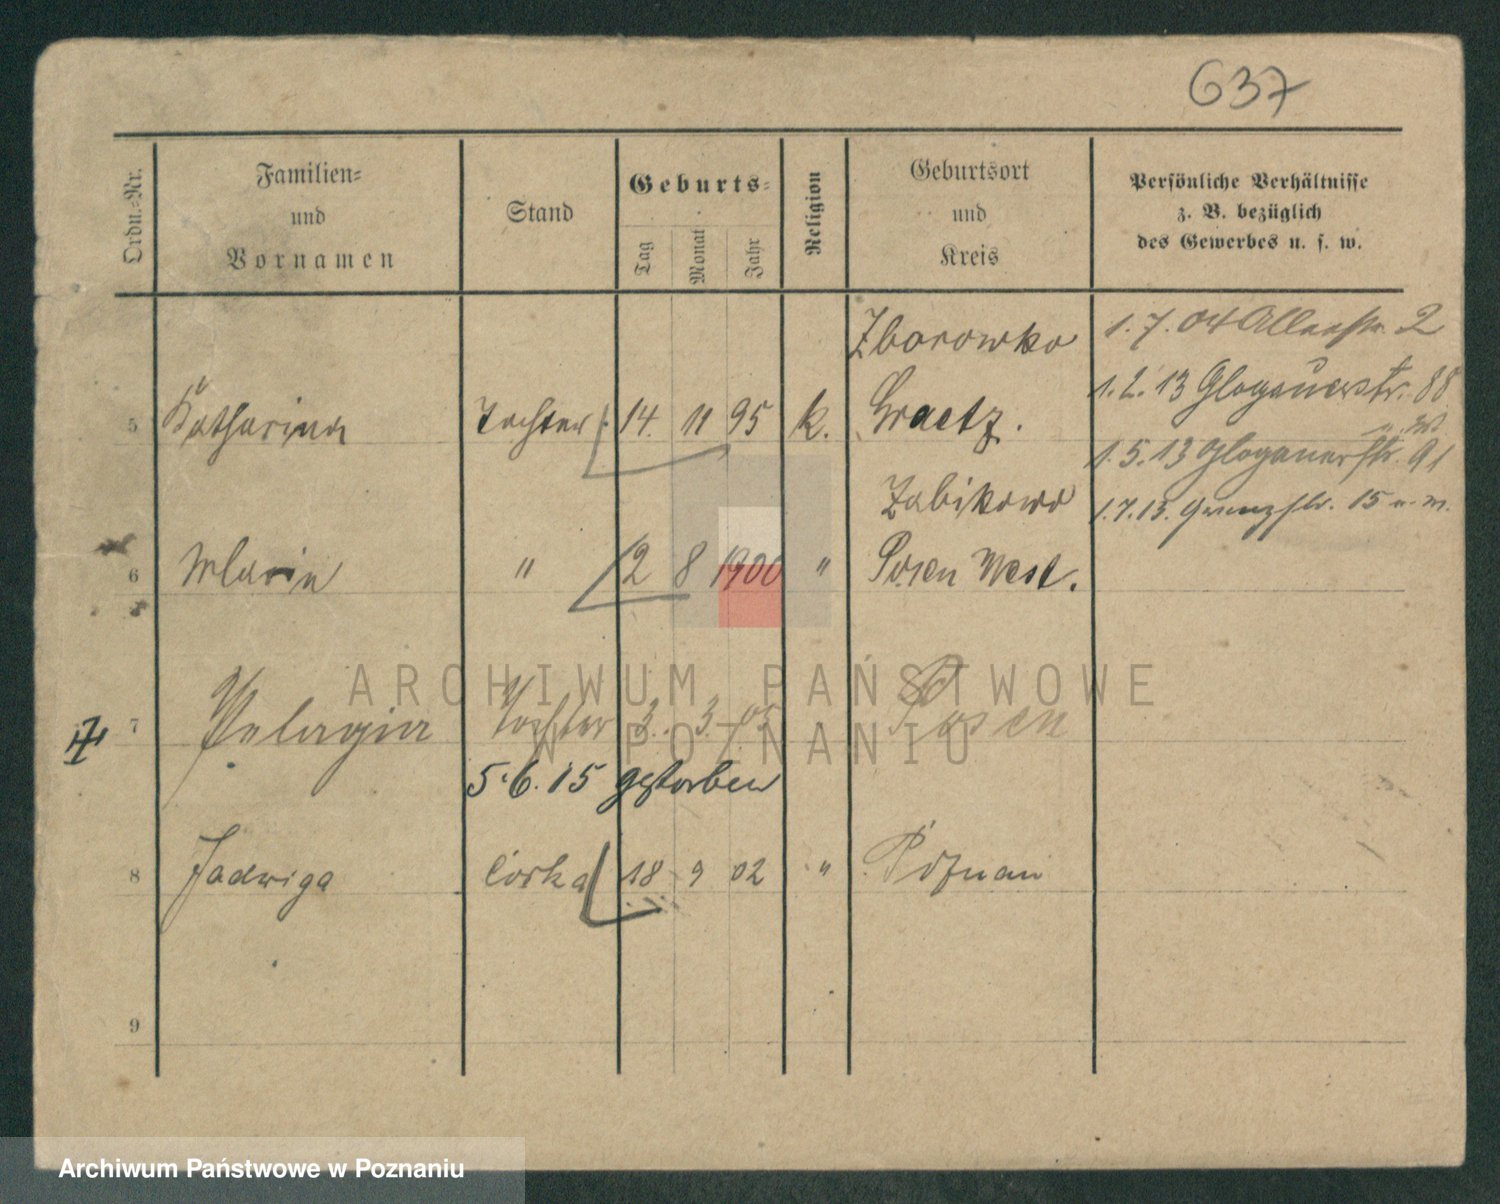 637
Ordn.-Nr.
Familien-
und
Vornamen
Stand
Geburts-
Tag
Monat
Jahr
Religion
Geburtsort
und
Kreis
Persönliche Verhältnisse
z. B. bezüglich
des Gewerbes u. s. w.
5 Katharina Tochter 14. 11 95 k. Zborowko
Graetz.
1. 7. 04 Allerstr. 2
1. 2. 13 Glogauerstr. 88
1. 5. 13 Glogauerstr. 91
1. 7. 13. Grenzstr. 15
6 Maria " 2 8 1900 " Zabikowo
Posen West.
7 Pelagia Tochter 3. 3. 05 Posen
5. 6. 15 gestorben
8 Jadwiga córka 18 9 02 " Poznań
9
ARCHIWUM PAŃSTWOWE
W POZNANIU
Archiwum Państwowe w Poznaniu